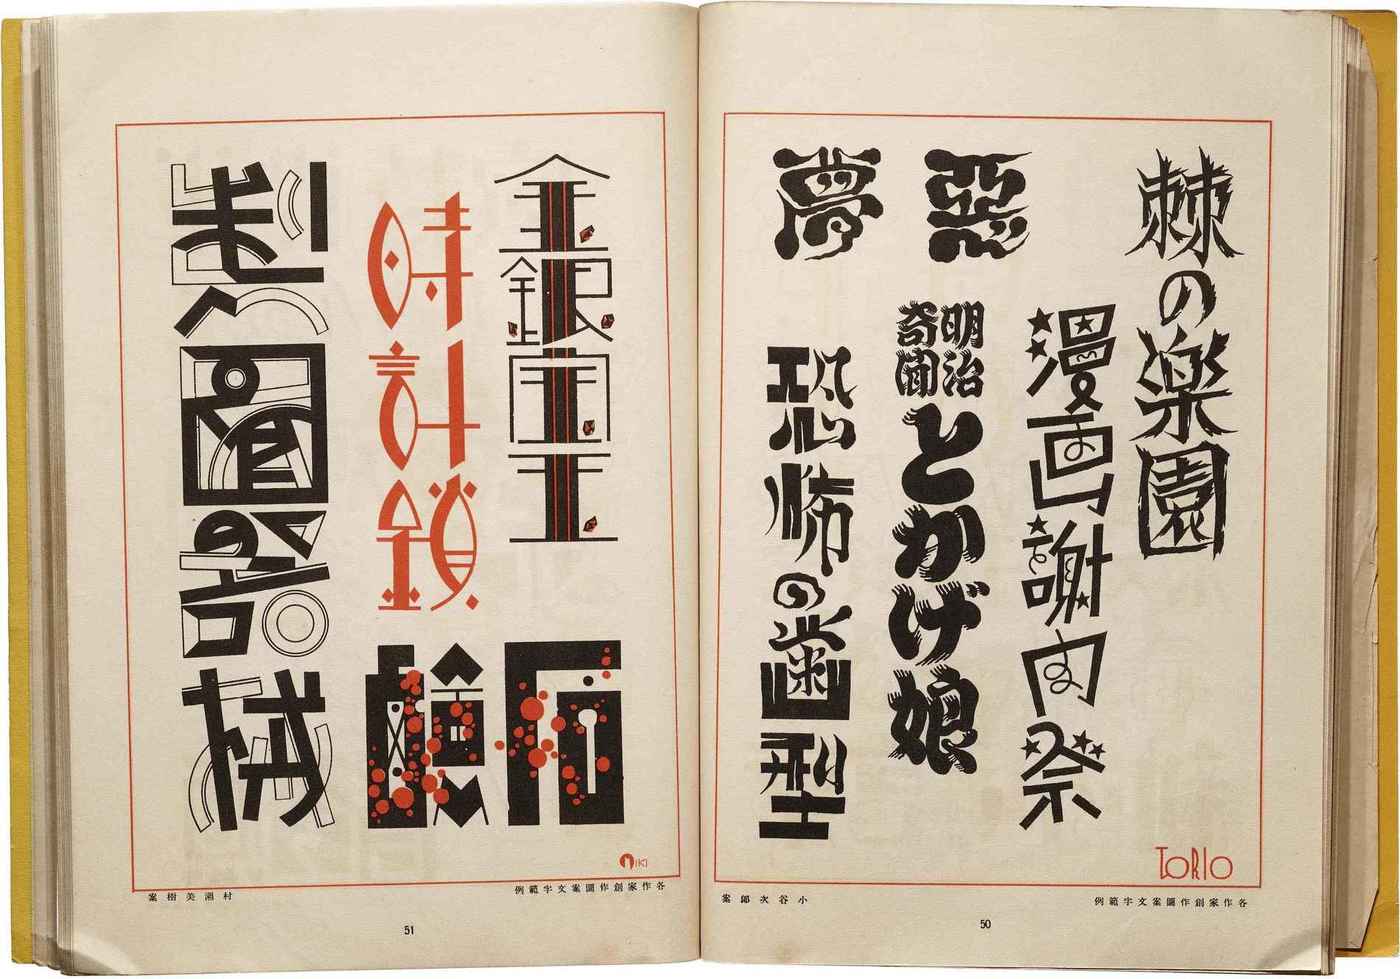 棘の楽園
漫画謝肉祭
明治
奇聞
とかげ娘
惡夢
恐怖の歯型
TORIO
各作家創作圖案文字範例
小谷次郎案
50
金銀宝玉
時計鎖
石鹸
製圖器械
MIKI
各作家創作圖案文字範例
村瀬美樹案
51